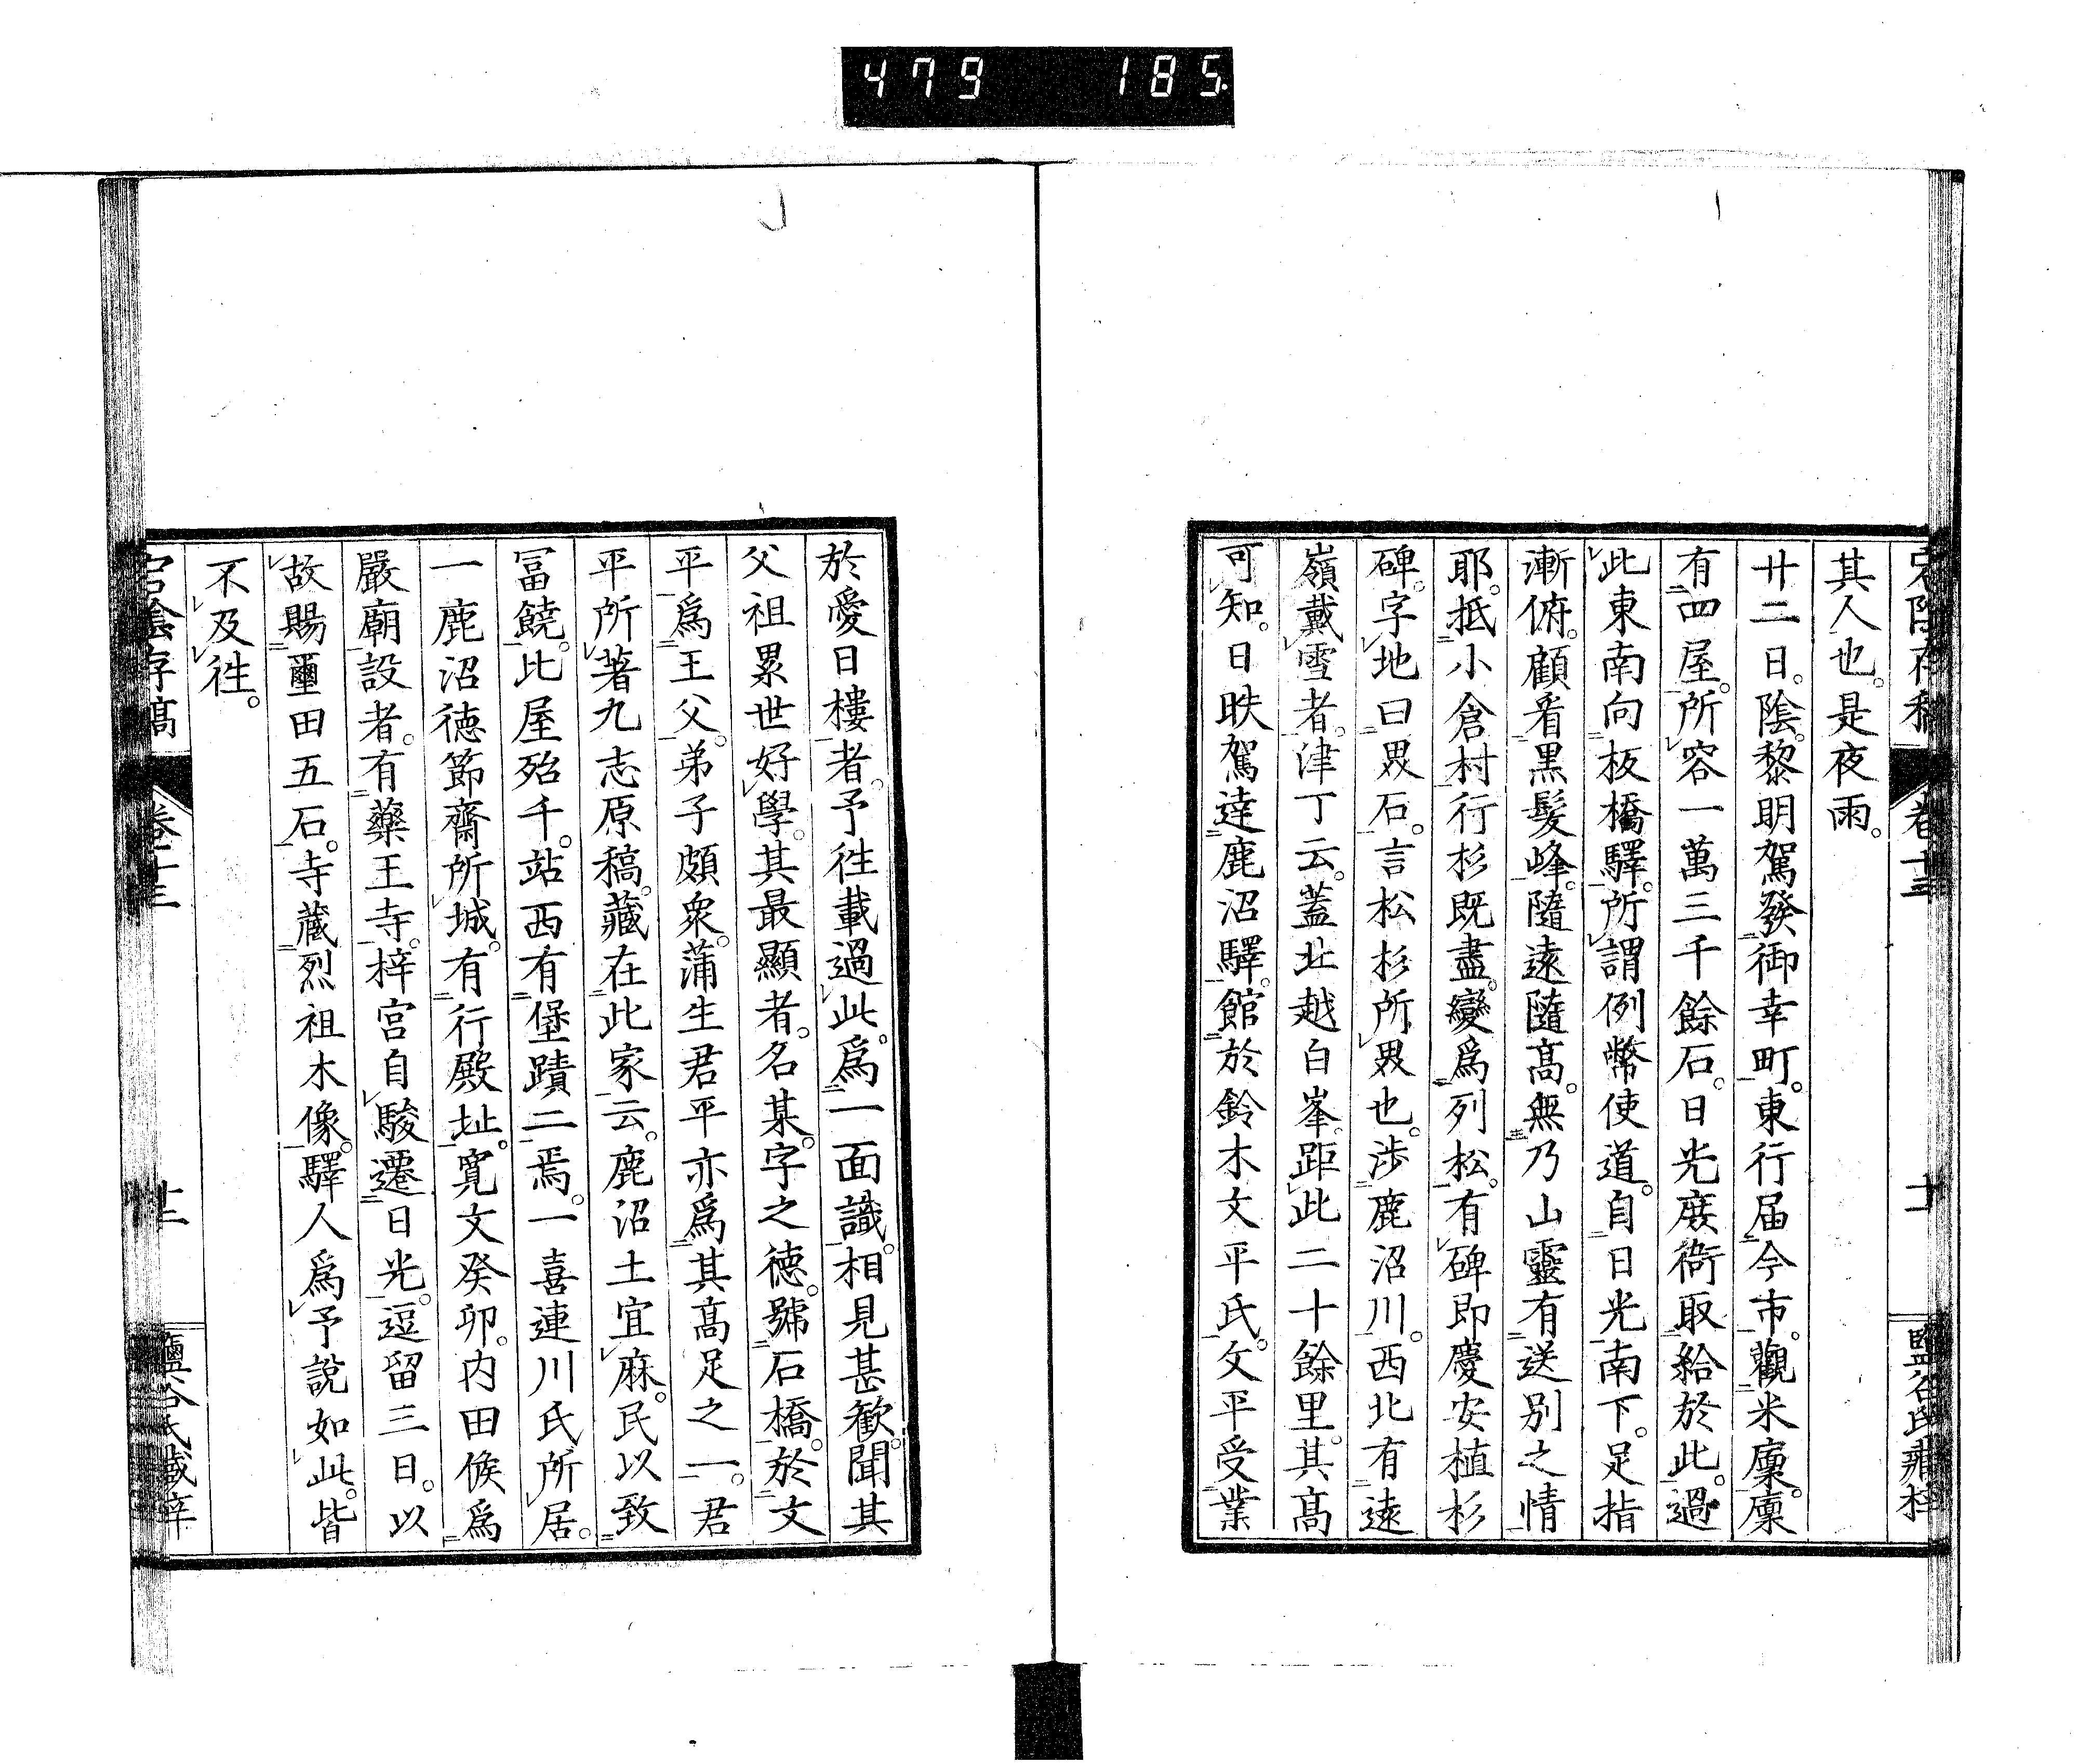 479 185
其人也。是夜雨。
廿二日。陰。黎明駕發御幸町。東行届今市。觀米廩。廩
有四屋。所容一萬三千餘石。日光庶衙取給於此。過
此東南向板橋驛。所謂例幣使道。自日光南下。足指
漸俯。顧看黒髮峰。隨遠隨高。無乃山靈有送別之情
耶。抵小倉村。行杉既盡。變爲列松。有碑即慶安植杉
碑。字地曰界石。言松杉所界也。渉鹿沼川。西北有遠
嶺戴雪者。津丁云。蓋北越白峯。距此二十餘里。其高
可知。日昳駕達鹿沼驛。館於鈴木文平氏。文平受業
於愛日樓者。予往載過此。爲一面識。相見甚歓。聞其
父祖累世好學。其最顯者。名某。字之德。號石橋。於文
平爲王父。弟子頗衆。蒲生君平亦爲其高足之一。君
平所著九志原稿。藏在此家云。鹿沼土宜麻。民以致
冨饒。比屋殆千。站西有堡蹟二焉。一喜連川氏所居。
一鹿沼德節齋所城。有行殿址。寛文癸卯。内田侯爲
嚴廟設者。有藥王寺。梓宮自駿遷日光。逗留三日。以
故賜璽田五石。寺藏烈祖木像。驛人爲予說如此。皆
不及往。
宕陰存稿 卷十三 鹽谷氏藏梓